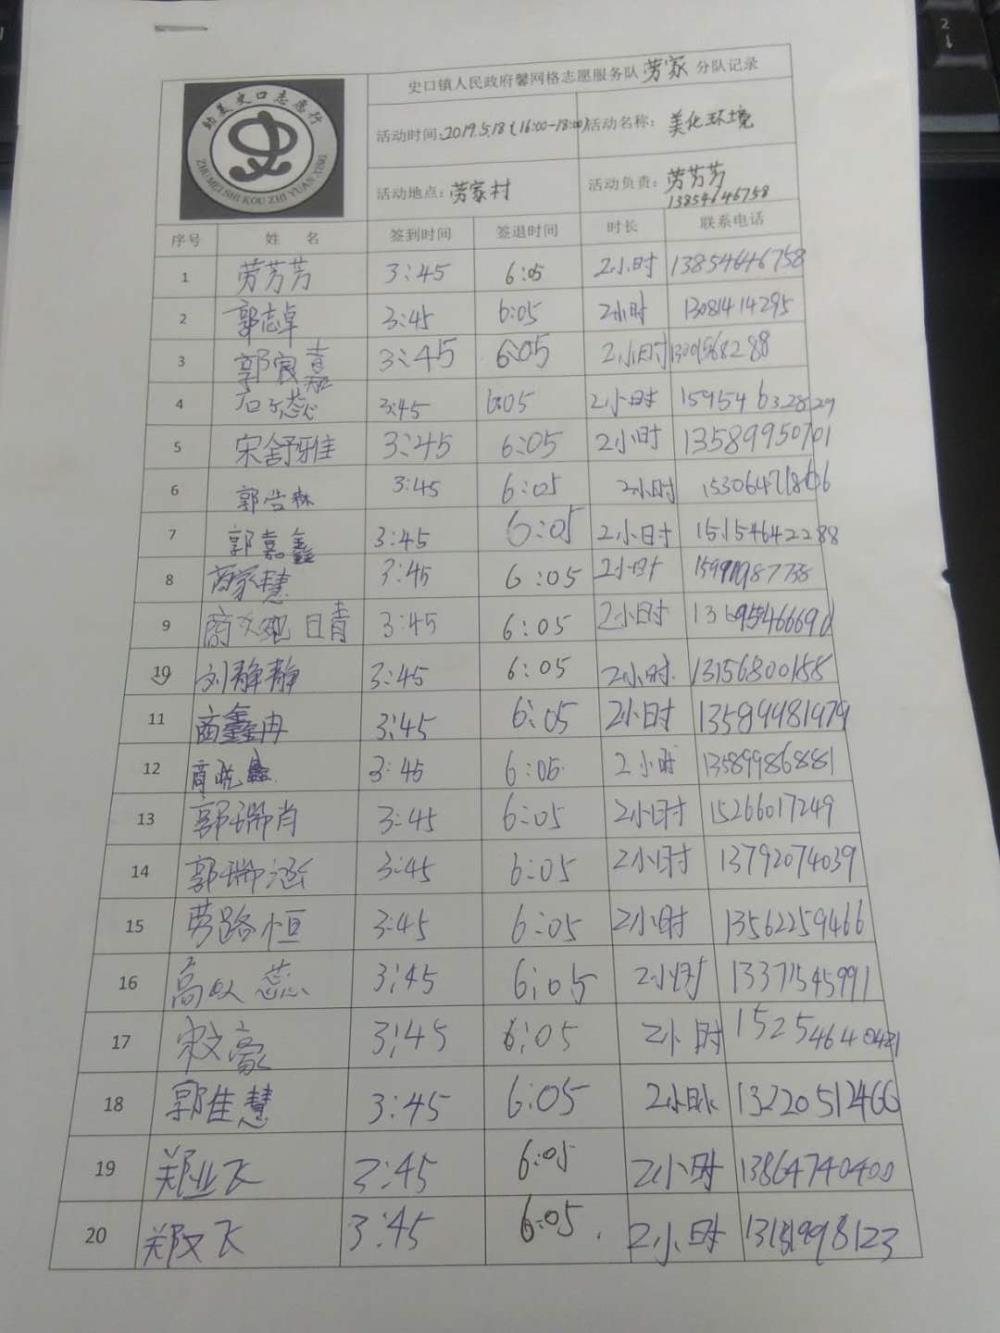 史口镇人民政府馨网格志愿服务队劳家分队记录
助美史口志愿行
ZHU MEI SHI KOU ZHI YUAN XING
活动时间:2019.5.18(16:00-18:00) 活动名称: 美化环境
活动地点: 劳家村 活动负责: 劳芳芳
13854646758
序号 姓 名 签到时间 签退时间 时长 联系电话
1 劳芳芳 3:45 6:05 2小时 13854646758
2 郭志卓 3:45 6:05 2小时 13081414295
3 郭宸嘉 3:45 6:05 2小时 13001568288
4 3:45 6:05 2小时 15954632829
5 宋舒雅 3:45 6:05 2小时 13589950701
6 郭浩森 3:45 6:05 2小时 15306471806
7 郭嘉鑫 3:45 6:05 2小时 15154642288
8 商家慧 3:45 6:05 2小时
9 3:45 6:05 2小时
10 刘静静 3:45 6:05 2小时. 13156800158
11 商鑫冉 3:45 6:05 2小时 13589981979
12 3:45 6:05 2小时 13589986881
13 郭瑞肖 3:45 6:05 2小时 15266017249
14 郭瑞涵 3:45 6:05 2小时 13792074039
15 劳路恒 3:45 6:05 2小时 13562259466
16 3:45 6:05 2小时 13371545991
17 宋文豪 3:45 6:05 2小时
18 郭佳慧 3:45 6:05 2小时 13220512466
19 郑业飞 3:45 6:05 2小时 13864740400
20 郑文飞 3:45 6:05. 2小时